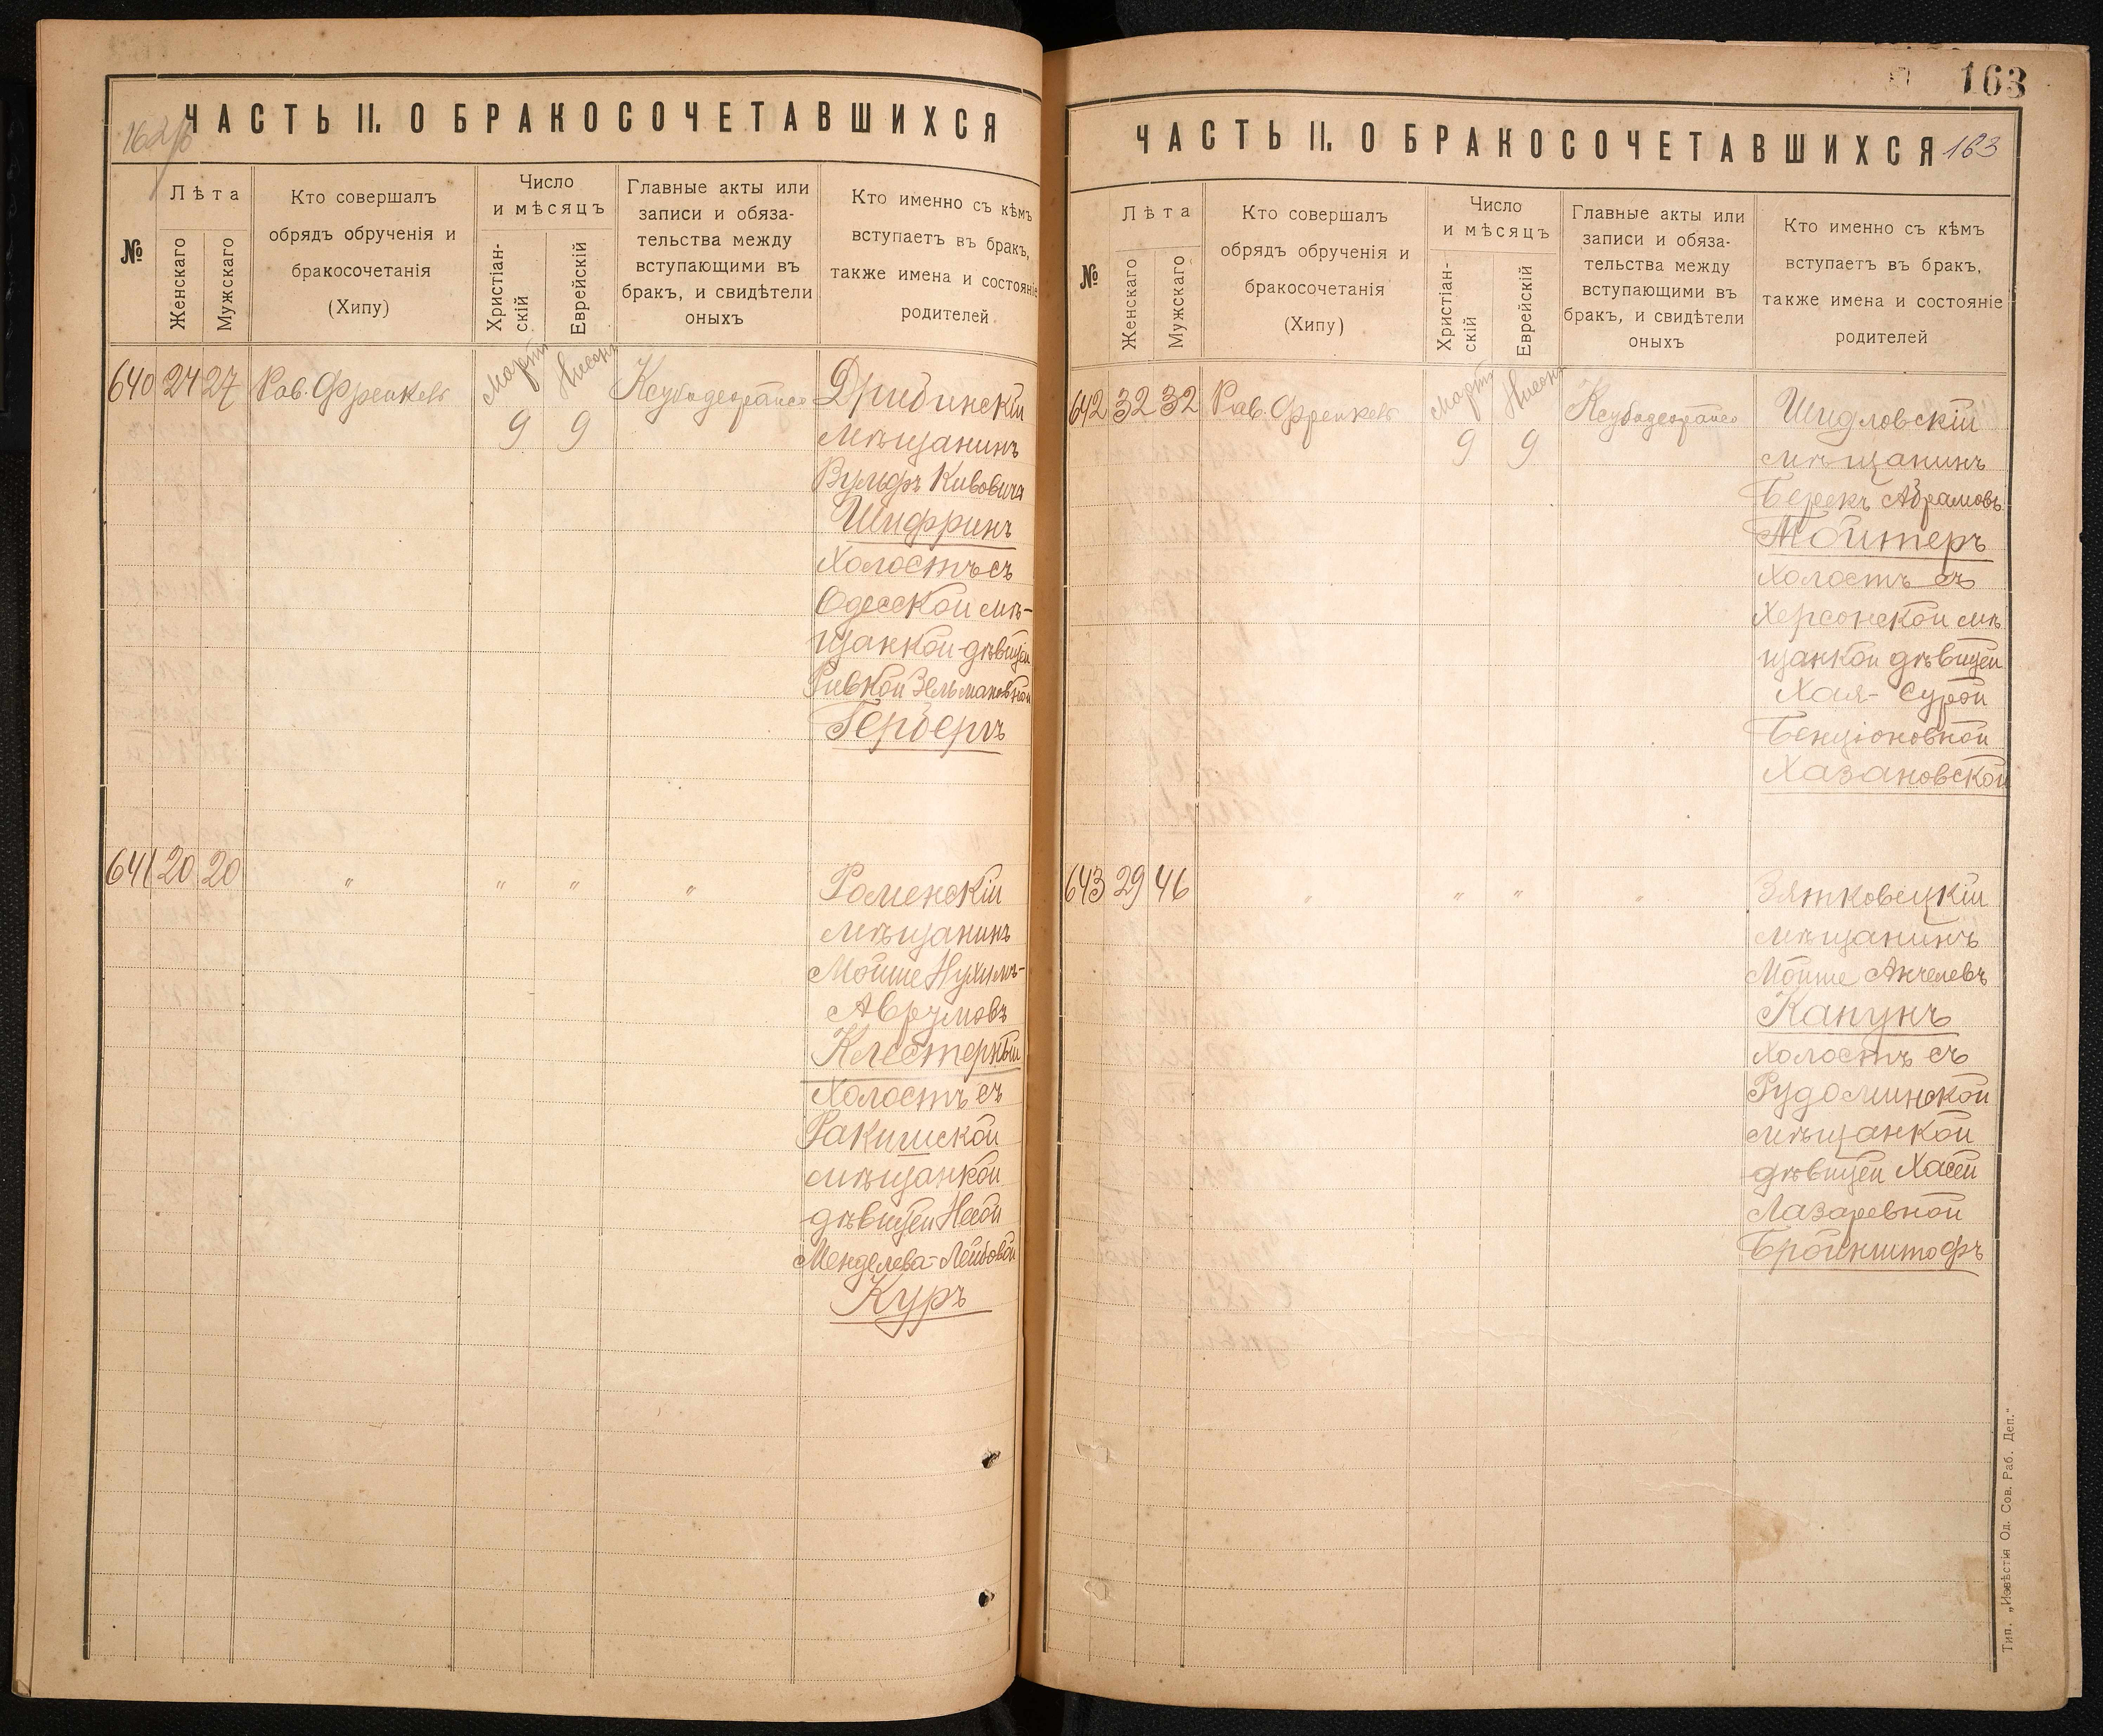 162/об
ЧАСТЬ II. О БРАКОСОЧЕТАВШИХСЯ
№
Лѣта
Женскаго
Мужскаго
Кто совершалъ
обрядъ обрученія и
бракосочетанія
(Хипу)
Число
и мѣсяцъ
Христіан-
скій
Еврейскій
Главные акты или
записи и обяза-
тельства между
вступающими въ
бракъ, и свидѣтели
оныхъ
Кто именно съ кѣмъ
вступаетъ въ бракъ,
также имена и состояніе
родителей
640 24 27 Рав. Френкель
Мартъ
9
Нисонъ
9
Дрибинскій
мѣщанинъ
Вульфъ Кивовичъ
Шифринъ
холостъ съ
Одесской мѣ-
щанкой дѣвицей
Ривкой Зельмановной
Герберъ
641 20 20 " " " "
Роменскій
мѣщанинъ
Мойше Нухимъ-
Аврумовъ
Клестерный
холостъ съ
Ракишской
мѣщанкой
дѣвицей Несой
Менделева-Лейбовой
Куръ
163
ЧАСТЬ II. О БРАКОСОЧЕТАВШИХСЯ 163
№
Лѣта
Женскаго
Мужскаго
Кто совершалъ
обрядъ обрученія и
бракосочетанія
(Хипу)
Число
и мѣсяцъ
Христіан-
скій
Еврейскій
Главные акты или
записи и обяза-
тельства между
вступающими въ
бракъ, и свидѣтели
оныхъ
Кто именно съ кѣмъ
вступаетъ въ бракъ,
также имена и состояніе
родителей
642 32 32 Рав. Френкель
Мартъ
9
Нисонъ
9
Шидловскій
мѣщанинъ
Берекъ Абрамовъ
Мойтеръ
холостъ съ
Херсонской мѣ
щанкой дѣвицей
Хая-Сурой
Бенціоновной
Хазановской
643 29 46 " " " "
Зятковецкій
мѣщанинъ
Мойше Анчелевъ
Капунъ
холостъ съ
Рудоминской
мѣщанкой
дѣвицей Хасей
Лазаревной
Бройнштофъ
Тип. „Извѣстія Од. Сов. Раб. Деп."